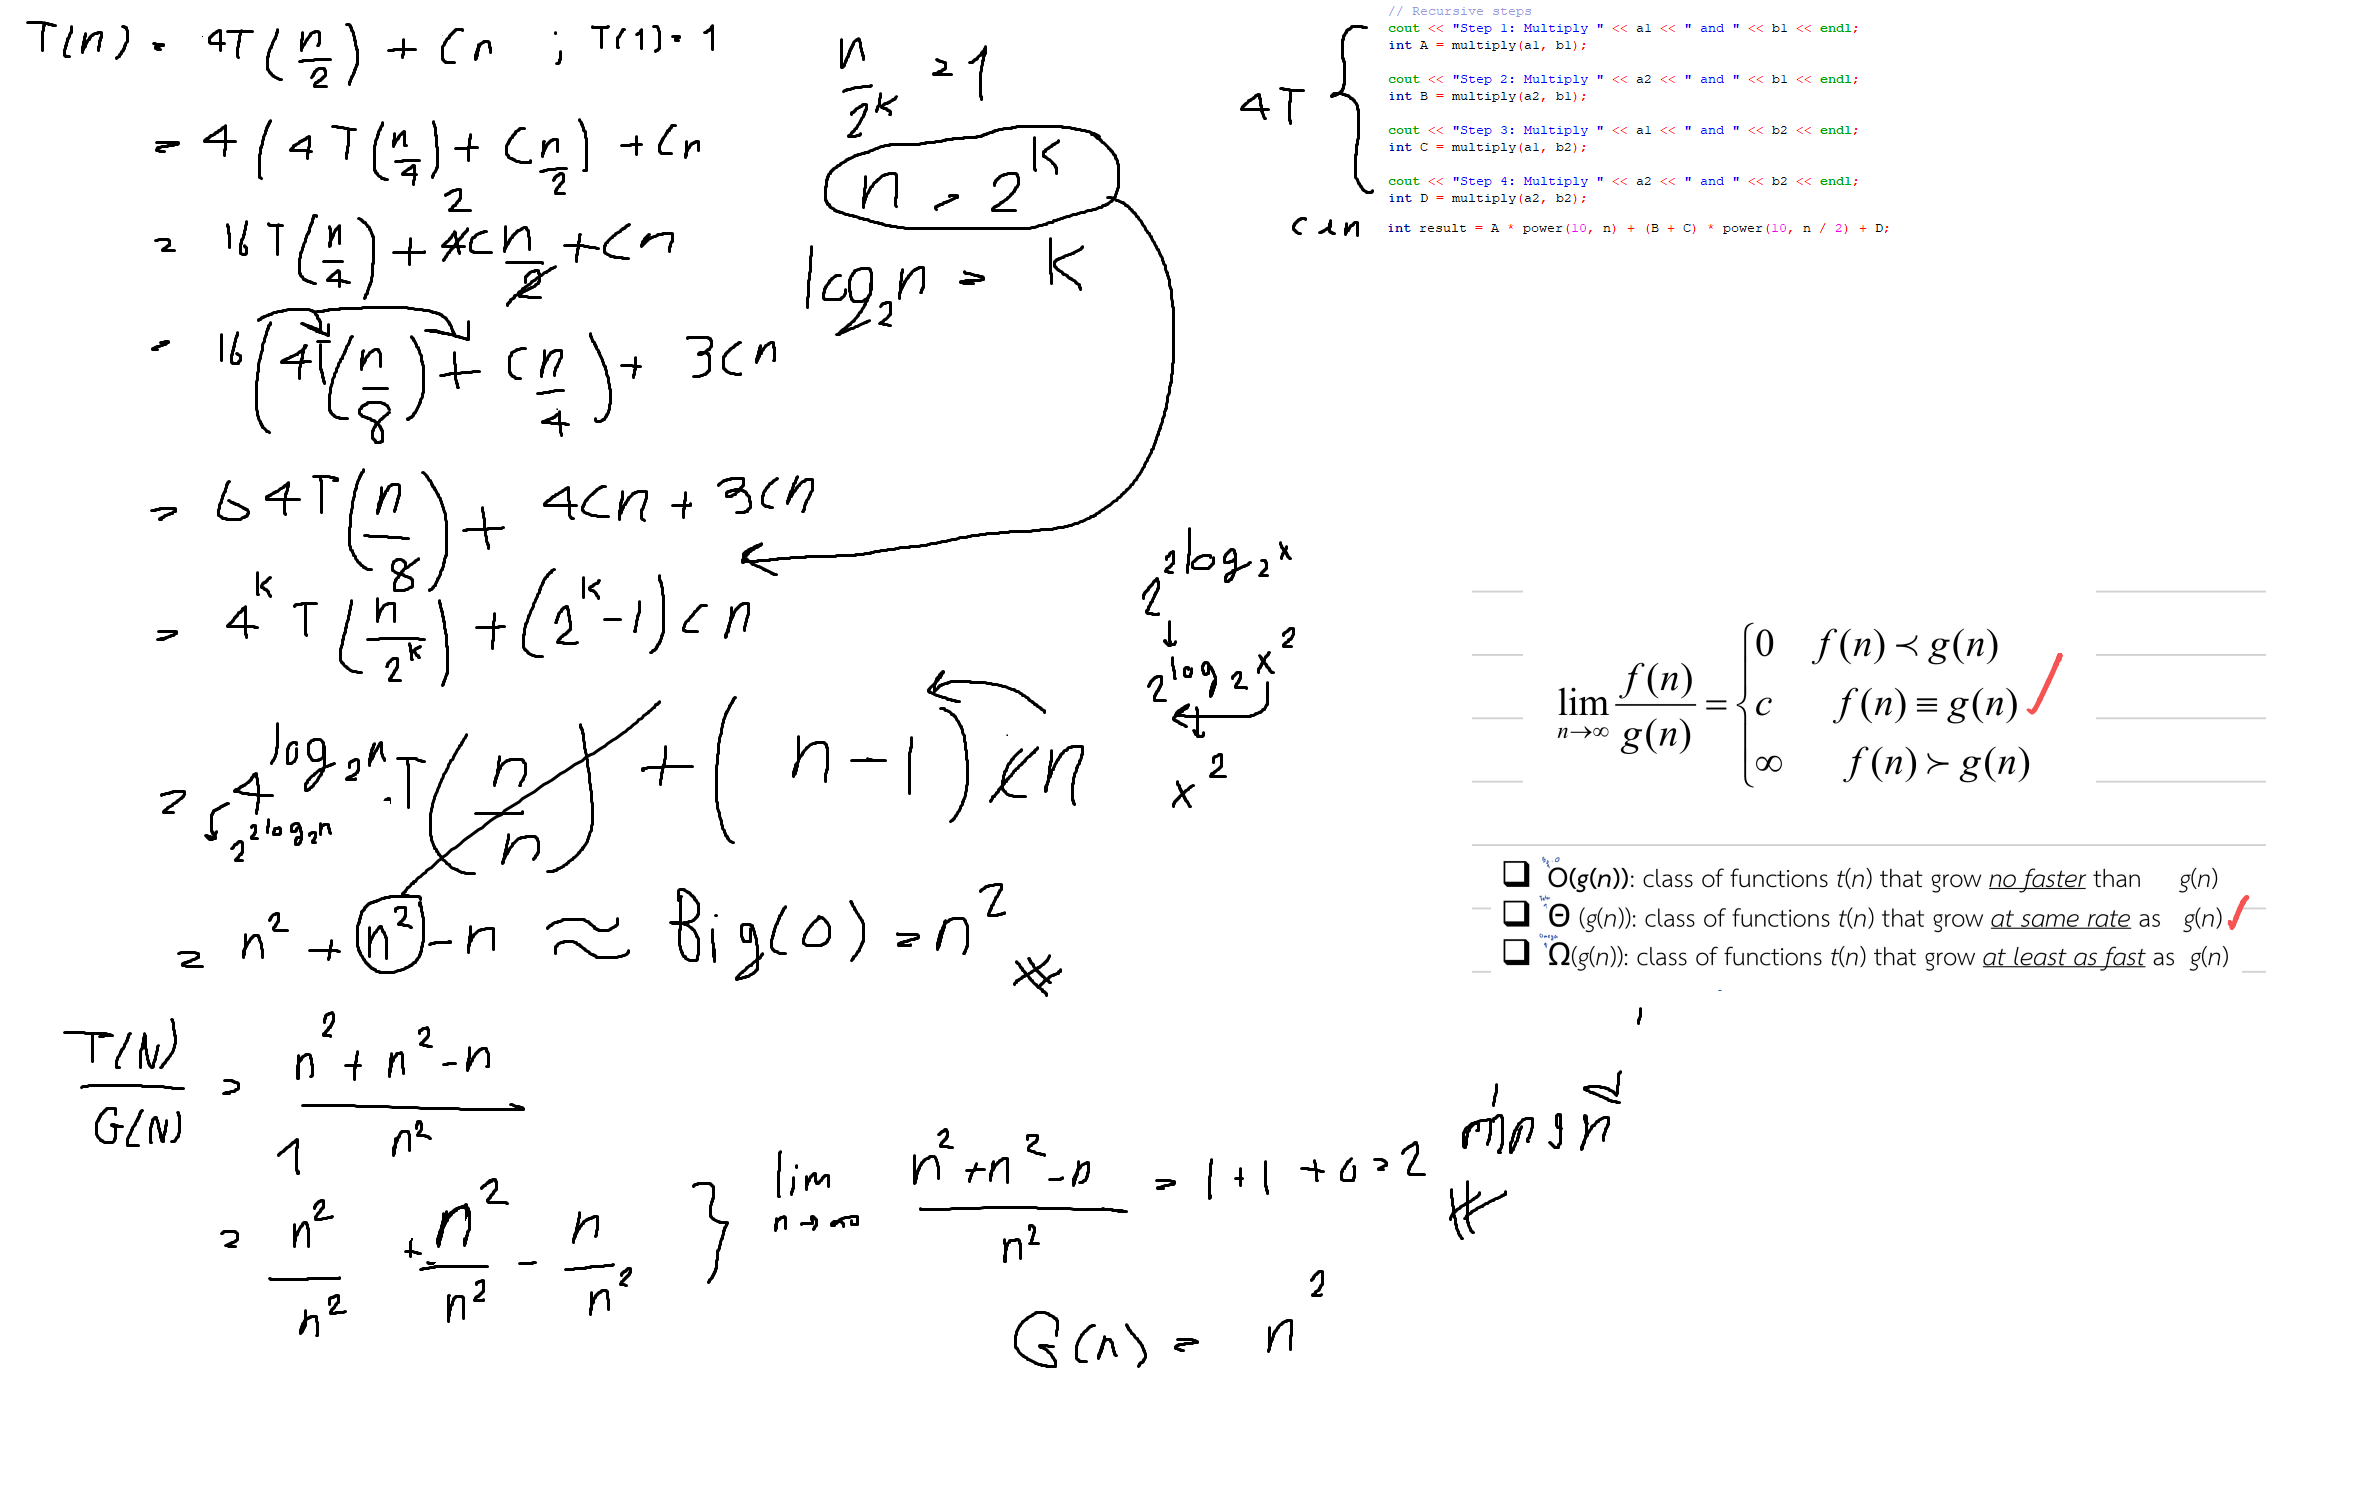 T(n) = 4T(n/2) + Cn ; T(1) = 1
= 4(4T(n/4) + Cn/2) + Cn
= 16T(n/4) + 4Cn/2 + Cn
2
= 16(4T(n/8) + Cn/4) + 3Cn
= 64T(n/8) + 4Cn + 3Cn
= 4^k T(n/2^k) + (2^k - 1)Cn
= 4^log₂n . T(n/n) + (n - 1)Cn
2^2log₂n
= n² + n² - n ≈ Big(O) = n²
T(N)/G(N) = (n² + n² - n)/n²
1
= n²/n² + n²/n² - n/n² } lim n→∞ (n² + n² - n)/n² = 1 + 1 + 0 = 2
G(n) = n²
n/2^k = 1
n = 2^k
log₂n = k
2^2log₂x
2^log₂x²
x²
4T
// Recursive steps
cout << "Step 1: Multiply " << a1 << " and " << b1 << endl;
int A = multiply(a1, b1);
cout << "Step 2: Multiply " << a2 << " and " << b1 << endl;
int B = multiply(a2, b1);
cout << "Step 3: Multiply " << a1 << " and " << b2 << endl;
int C = multiply(a1, b2);
cout << "Step 4: Multiply " << a2 << " and " << b2 << endl;
int D = multiply(a2, b2);
int result = A * power(10, n) + (B + C) * power(10, n / 2) + D;
lim n→∞ f(n)/g(n) = { 0 f(n) ≺ g(n)
c f(n) ≡ g(n)
∞ f(n) ≻ g(n)
❑ O(g(n)): class of functions t(n) that grow no faster than g(n)
❑ Θ (g(n)): class of functions t(n) that grow at same rate as g(n)
❑ Ω(g(n)): class of functions t(n) that grow at least as fast as g(n)